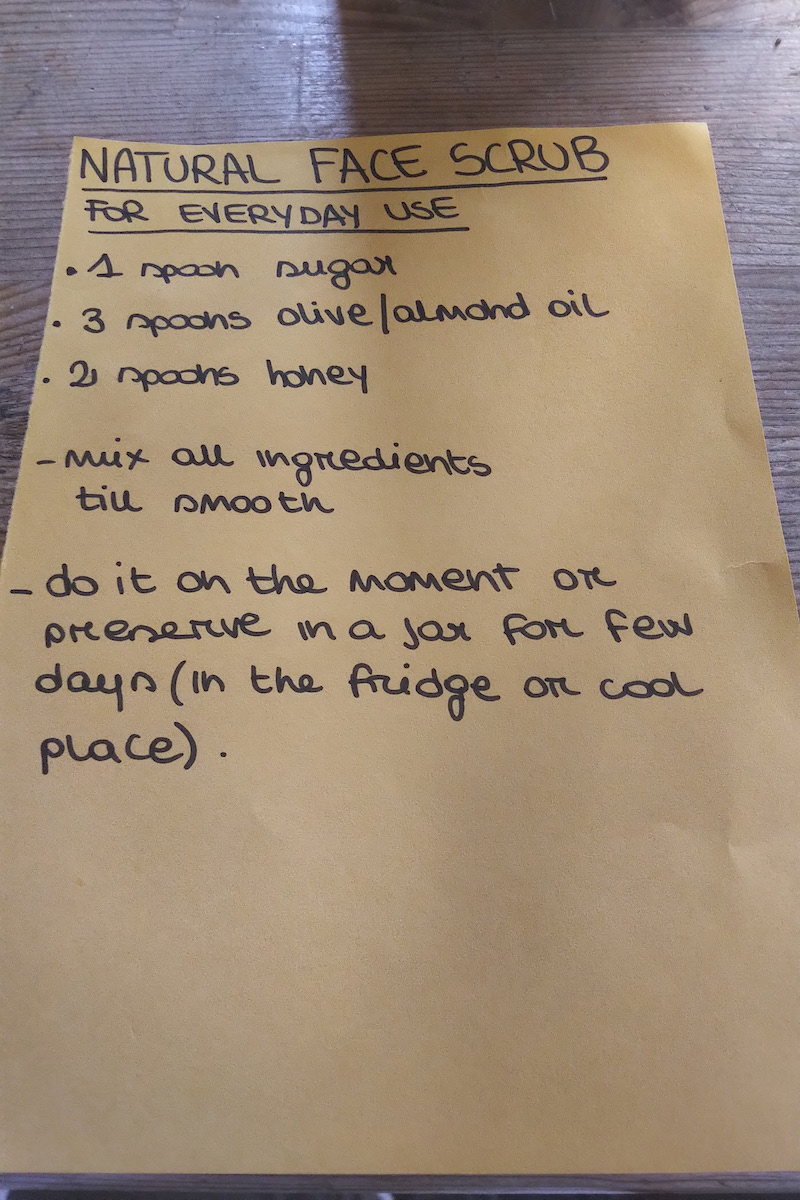 NATURAL FACE SCRUB
FOR EVERYDAY USE
• 1 spoon sugar
• 3 spoons olive/almond oil
• 2 spoons honey
- mix all ingredients
till smooth
- do it on the moment or
preserve in a jar for few
days (in the fridge or cool
place).